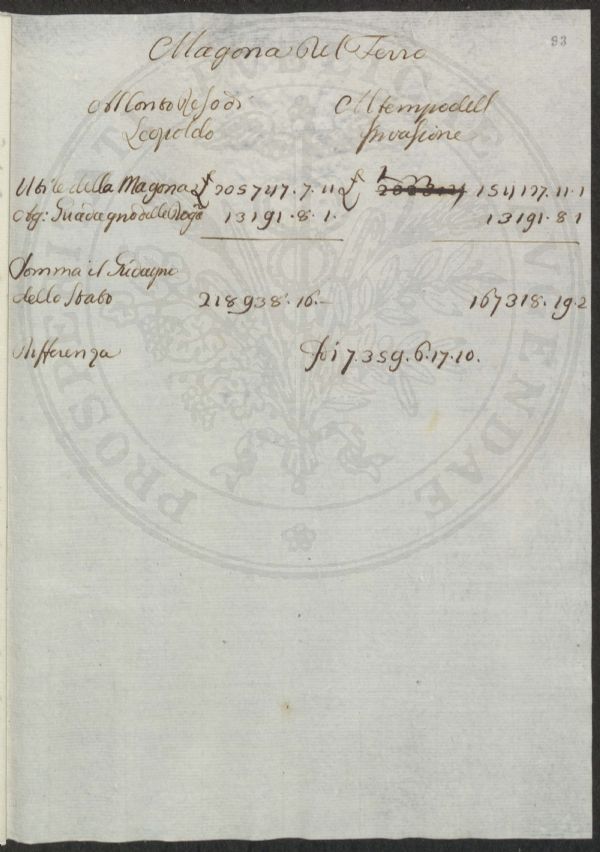 93
Magona del Ferro
Al Conto Reso di
Leopoldo
Al tempo dell
Invasione
Utile della Magona £ 205747.7.11 £ 154127.11.1
Agg: Guadagno delle 13191.8.1. 13191.8.1
Somma il Guadagno
dello Stato 218938.16.— 167318.19.2
Differenza 7.359.6.17.10.
PROSPERITATI PUBLICAE AUGENDAE